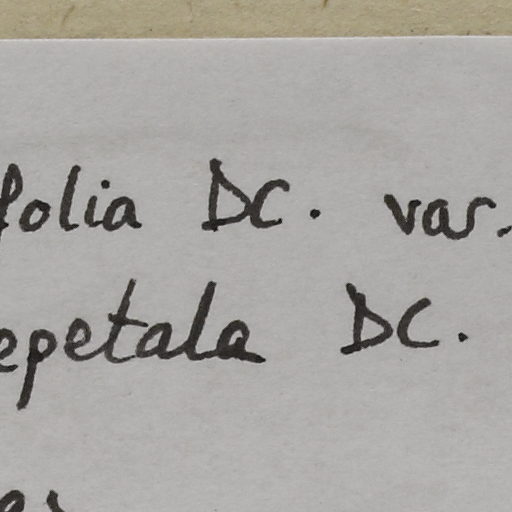 folia DC. var.
epetala DC.